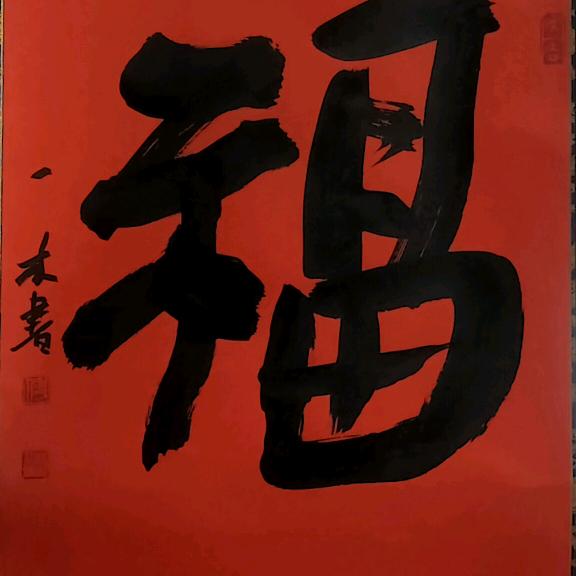 福
一木書